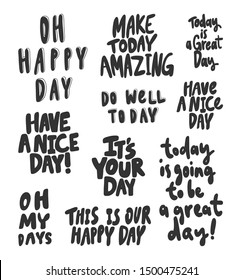 OH
HAPPY
DAY
MAKE
TODAY
AMAZING
Today
is a Great
Day
HAVE
A NICE
DAY!
DO WELL
TODAY
HAVE A
NICE DAY
IT'S
YOUR
DAY
today
is going
to be
a great
day!
OH
MY
DAYS
THIS IS OUR
HAPPY DAY
shutterstock.com · 1500475241